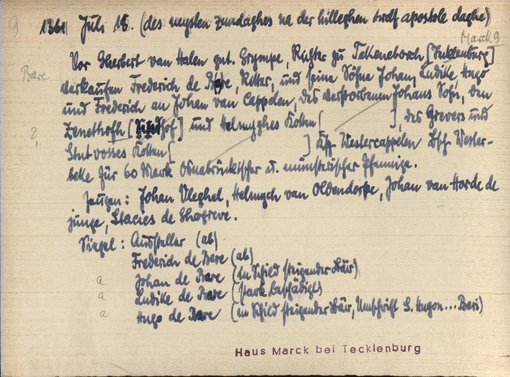 9) 1361 Juli 18. (des neysten zundaghes na der hilleghen twelf apostole daghe)
Marck 9
Vor Herbert van Halen gnt. Crympe, Richter zu Tekeneborch [Tecklenburg]
Bare verkaufen Frederich de Bare, Ritter, und seine Söhne Johan, Ludike, Hugo
und Frederich an Johan van Cappelen, des verstorbenen Johans Sohn, den
2, Zenethofh [hof] und Helmyghes Kotten [ ], des Grevers und
Stutvosses Kotten [ ] Ksp. Westercappelen Bsch. Wester-
beke für 60 Mark Osnabrückischer od. münsterischer Pfennige.
Zeugen: Johan Vleghel, Helmych van Oldendorpe, Johan van Horde de
junge, Stacies de Shogreve.
Siegel: Aussteller (ab)
Frederich de Bere (ab)
a Johan de Bare (in Schild steigender Bär)
a Ludike de Bare (stark beschädigt)
a Hugo de Bare (in Schild steigender Bär, Umschrift S. Hugon... Bari)
Haus Marck bei Tecklenburg